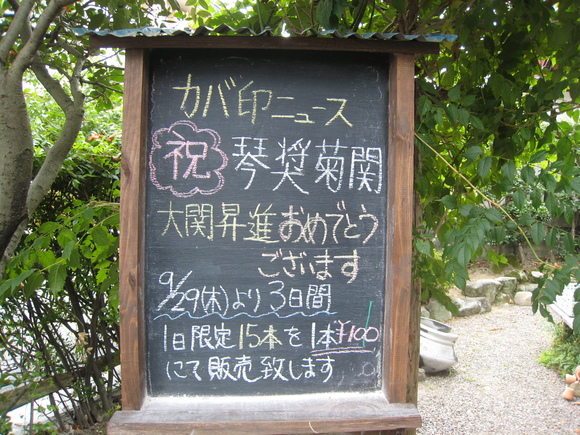 カバ印ニュース
祝 琴奨菊関
大関昇進おめでとう
ございます
9/29(木)より3日間
1日限定15本を1本¥100
にて販売致します